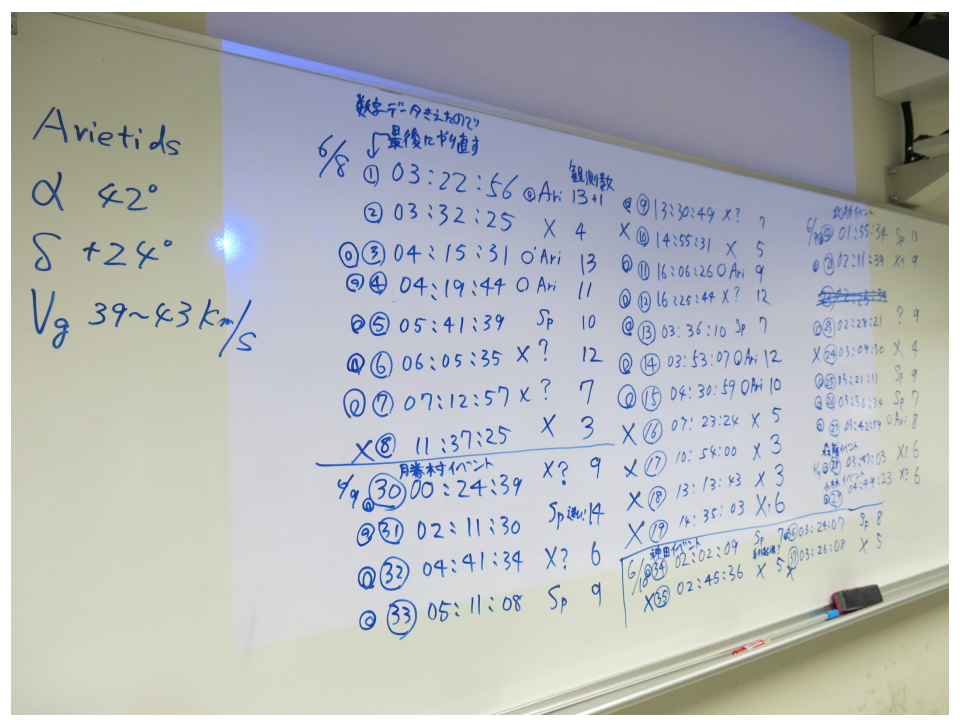 Arietids
α 42°
δ +24°
Vg 39~43 km/s
数字データきえたので
最後にやり直す
6/8 ① 03:22:56 ◎ Ari 13+1
観測数
② 03:32:25 X 4
③ 04:15:31 O Ari 13
④ 04:19:44 O Ari 11
⑤ 05:41:39 Sp 10
⑥ 06:05:35 X? 12
⑦ 07:12:57 X? 7
X ⑧ 11:37:25 X 3
月暮村イベント
6/9 ㉚ 00:24:39 X? 9
㉛ 02:11:30 Sp 14
㉜ 04:41:34 X? 6
㉝ 05:11:08 Sp 9
⑨ 13:30:49 X? 7
X ⑩ 14:55:31 X 5
⑪ 16:06:26 O Ari 9
⑫ 16:25:44 X? 12
⑬ 03:36:10 Sp 7
⑭ 03:53:07 O Ari 12
⑮ 04:30:59 O Ari 10
X ⑯ 07:23:24 X 5
X ⑰ 10:54:00 X 3
X ⑱ 13:13:43 X 3
X ⑲ 14:35:03 X? 6
神田イベント
6/18 ㉞ 02:02:09 Sp 7
X ㉟ 02:45:36 X 5
㊱ 03:24:07 Sp 8
X ㊲ 03:26:08 X 5
イベント
6/9 01:55:34 Sp 13
㉑ 02:11:39 X? 9
㉓ 02:28:21 ? 9
X ㉔ 03:09:30 X 4
㉕ 03:21:11 Sp 9
㉖ 03:36:34 Sp 7
㉗ 03:42:59 O Ari 8
イベント
㉘ 03:47:03 X? 6
イベント
㉙ 04:49:23 X? 6